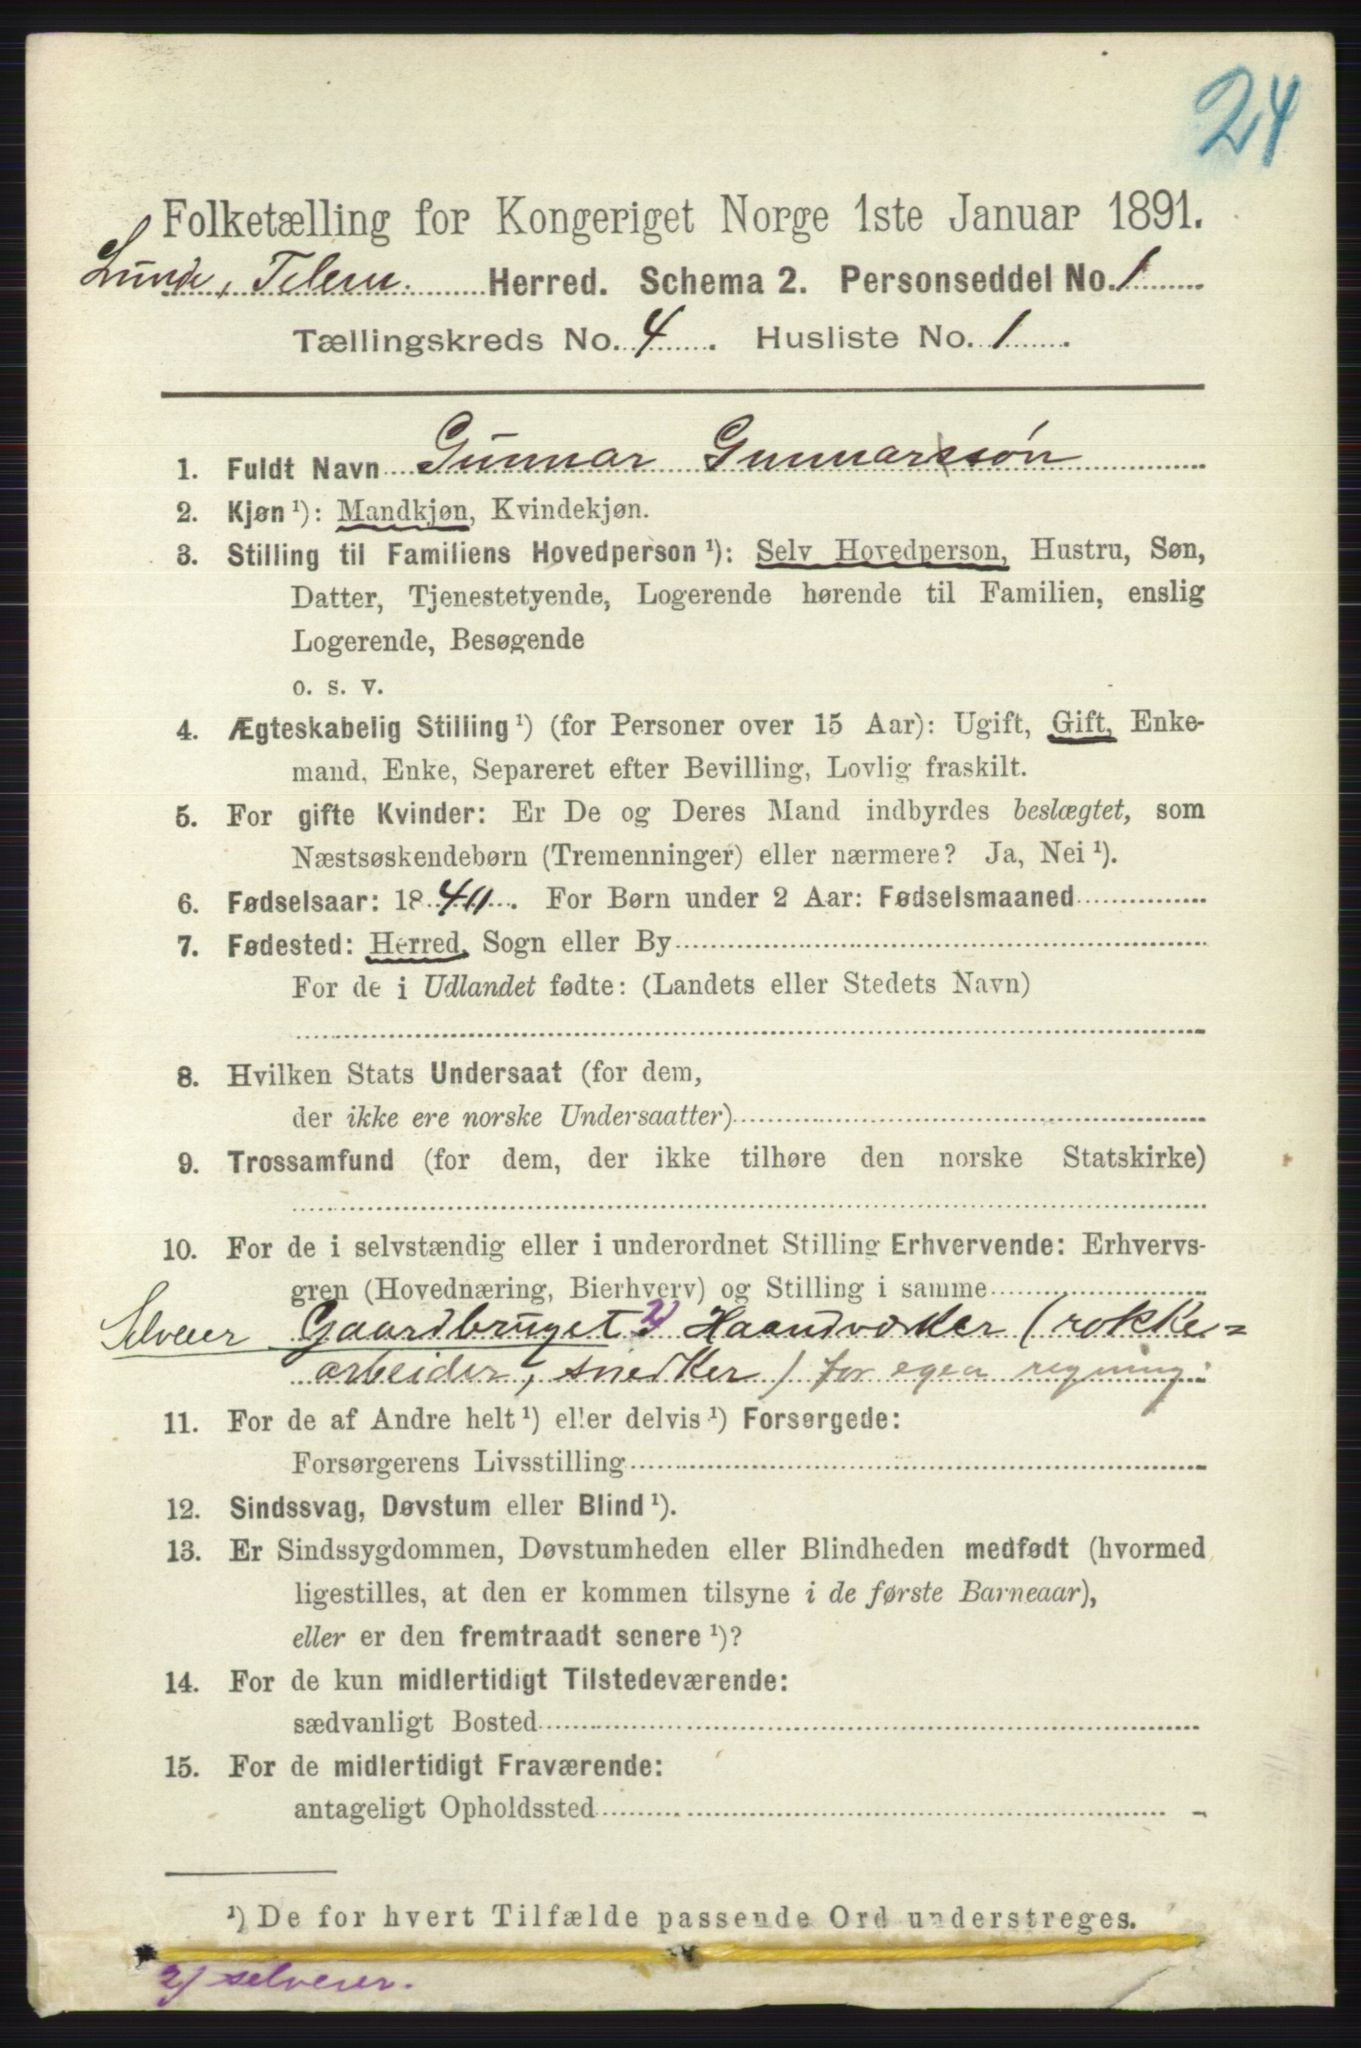 24
Folketælling for Kongeriget Norge 1ste Januar 1891.
Lunde, Telem. Herred. Schema 2. Personseddel No. 1
Tællingskreds No. 4. Husliste No. 1.
1. Fuldt Navn Gunnar Gunnarssøn
2. Kjøn ¹): Mandkjøn, Kvindekjøn.
3. Stilling til Familiens Hovedperson ¹): Selv Hovedperson, Hustru, Søn,
Datter, Tjenestetyende, Logerende hørende til Familien, enslig
Logerende, Besøgende
o. s. v.
4. Ægteskabelig Stilling ¹) (for Personer over 15 Aar): Ugift, Gift, Enke-
mand, Enke, Separeret efter Bevilling, Lovlig fraskilt.
5. For gifte Kvinder: Er De og Deres Mand indbyrdes beslægtet, som
Næstsøskendebørn (Tremenninger) eller nærmere? Ja, Nei ¹).
6. Fødselsaar: 1840. For Børn under 2 Aar: Fødselsmaaned
7. Fødested: Herred, Sogn eller By
For de i Udlandet fødte: (Landets eller Stedets Navn)
8. Hvilken Stats Undersaat (for dem,
der ikke ere norske Undersaatter)
9. Trossamfund (for dem, der ikke tilhøre den norske Statskirke)
10. For de i selvstændig eller i underordnet Stilling Erhvervende: Erhvervs-
gren (Hovednæring, Bierhverv) og Stilling i samme
Selveier Gaardbruget 2) Haandværker (rokke=
arbeider, snedker) for egen regning.
11. For de af Andre helt ¹) eller delvis ¹) Forsørgede:
Forsørgerens Livsstilling
12. Sindssvag, Døvstum eller Blind ¹).
13. Er Sindssygdommen, Døvstumheden eller Blindheden medfødt (hvormed
ligestilles, at den er kommen tilsyne i de første Barneaar),
eller er den fremtraadt senere ¹)?
14. For de kun midlertidigt Tilstedeværende:
sædvanligt Bosted
15. For de midlertidigt Fraværende:
antageligt Opholdssted
¹) De for hvert Tilfælde passende Ord understreges.
2) selveier.